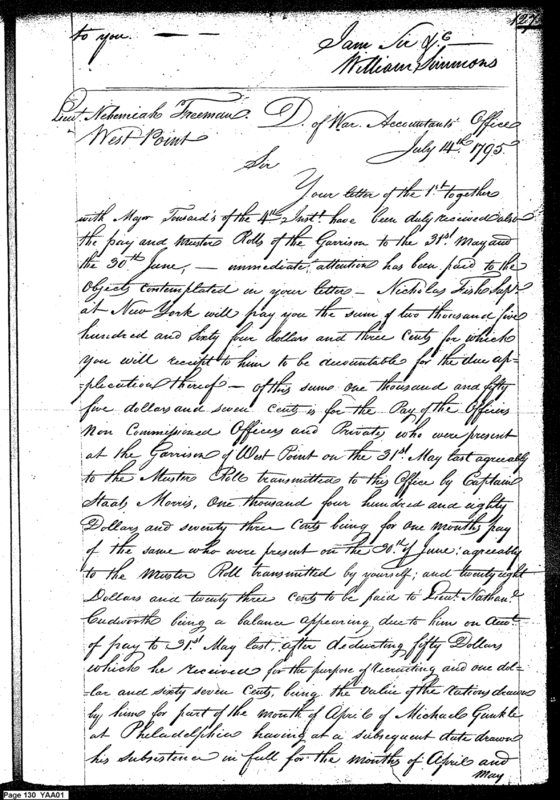 127
to you. — —
I am Sir &c
William Simmons
Lieut. Nehemiah Freeman
West Point
D. of War. Accountants Office
July 14th. 1795.
Sir
Your letter of the 1st. together
with Major Tousard's of the 4th Inst. have been duly received also
the pay and Muster Rolls of the Garrison to the 31st. May and
the 30th June, — immediate attention has been paid to the
Objects contemplated in your letter — Nicholas Fish Supr.
at New York will pay you the sum of two thousand five
hundred and Sixty four dollars and three Cents for which
you will receipt to him to be accountable for the due ap-
-plication thereof — of this sum one thousand and fifty
five dollars and seven Cents is for the Pay of the Officers
Non Commissioned Officers and Privates, who were present
at the Garrison of West Point on the 31st. May last agreeably
to the Muster Roll transmitted to this Office by Captain
Staats Morris, One thousand four hundred and eighty
Dollars and seventy three Cents being for one months pay
of the same who were present on the 30th. of June: agreeably
to the Muster Roll transmitted by yourself; and twenty eight
Dollars and twenty three Cents to be paid to Lieut. Nathanl.
Cudworth being a balance appearing due to him on Acct.
of pay to 31st. May last, after deducting fifty Dollars
which he received for the purpose of recruiting and one dol-
-lar and sixty seven Cents, being the value of the rations drawn
by him for part of the month of April of Michael Gunkle
at Philadelphia having at a subsequent date drawn
his subsistence in full for the months of April and
May
Page 130 YAA01